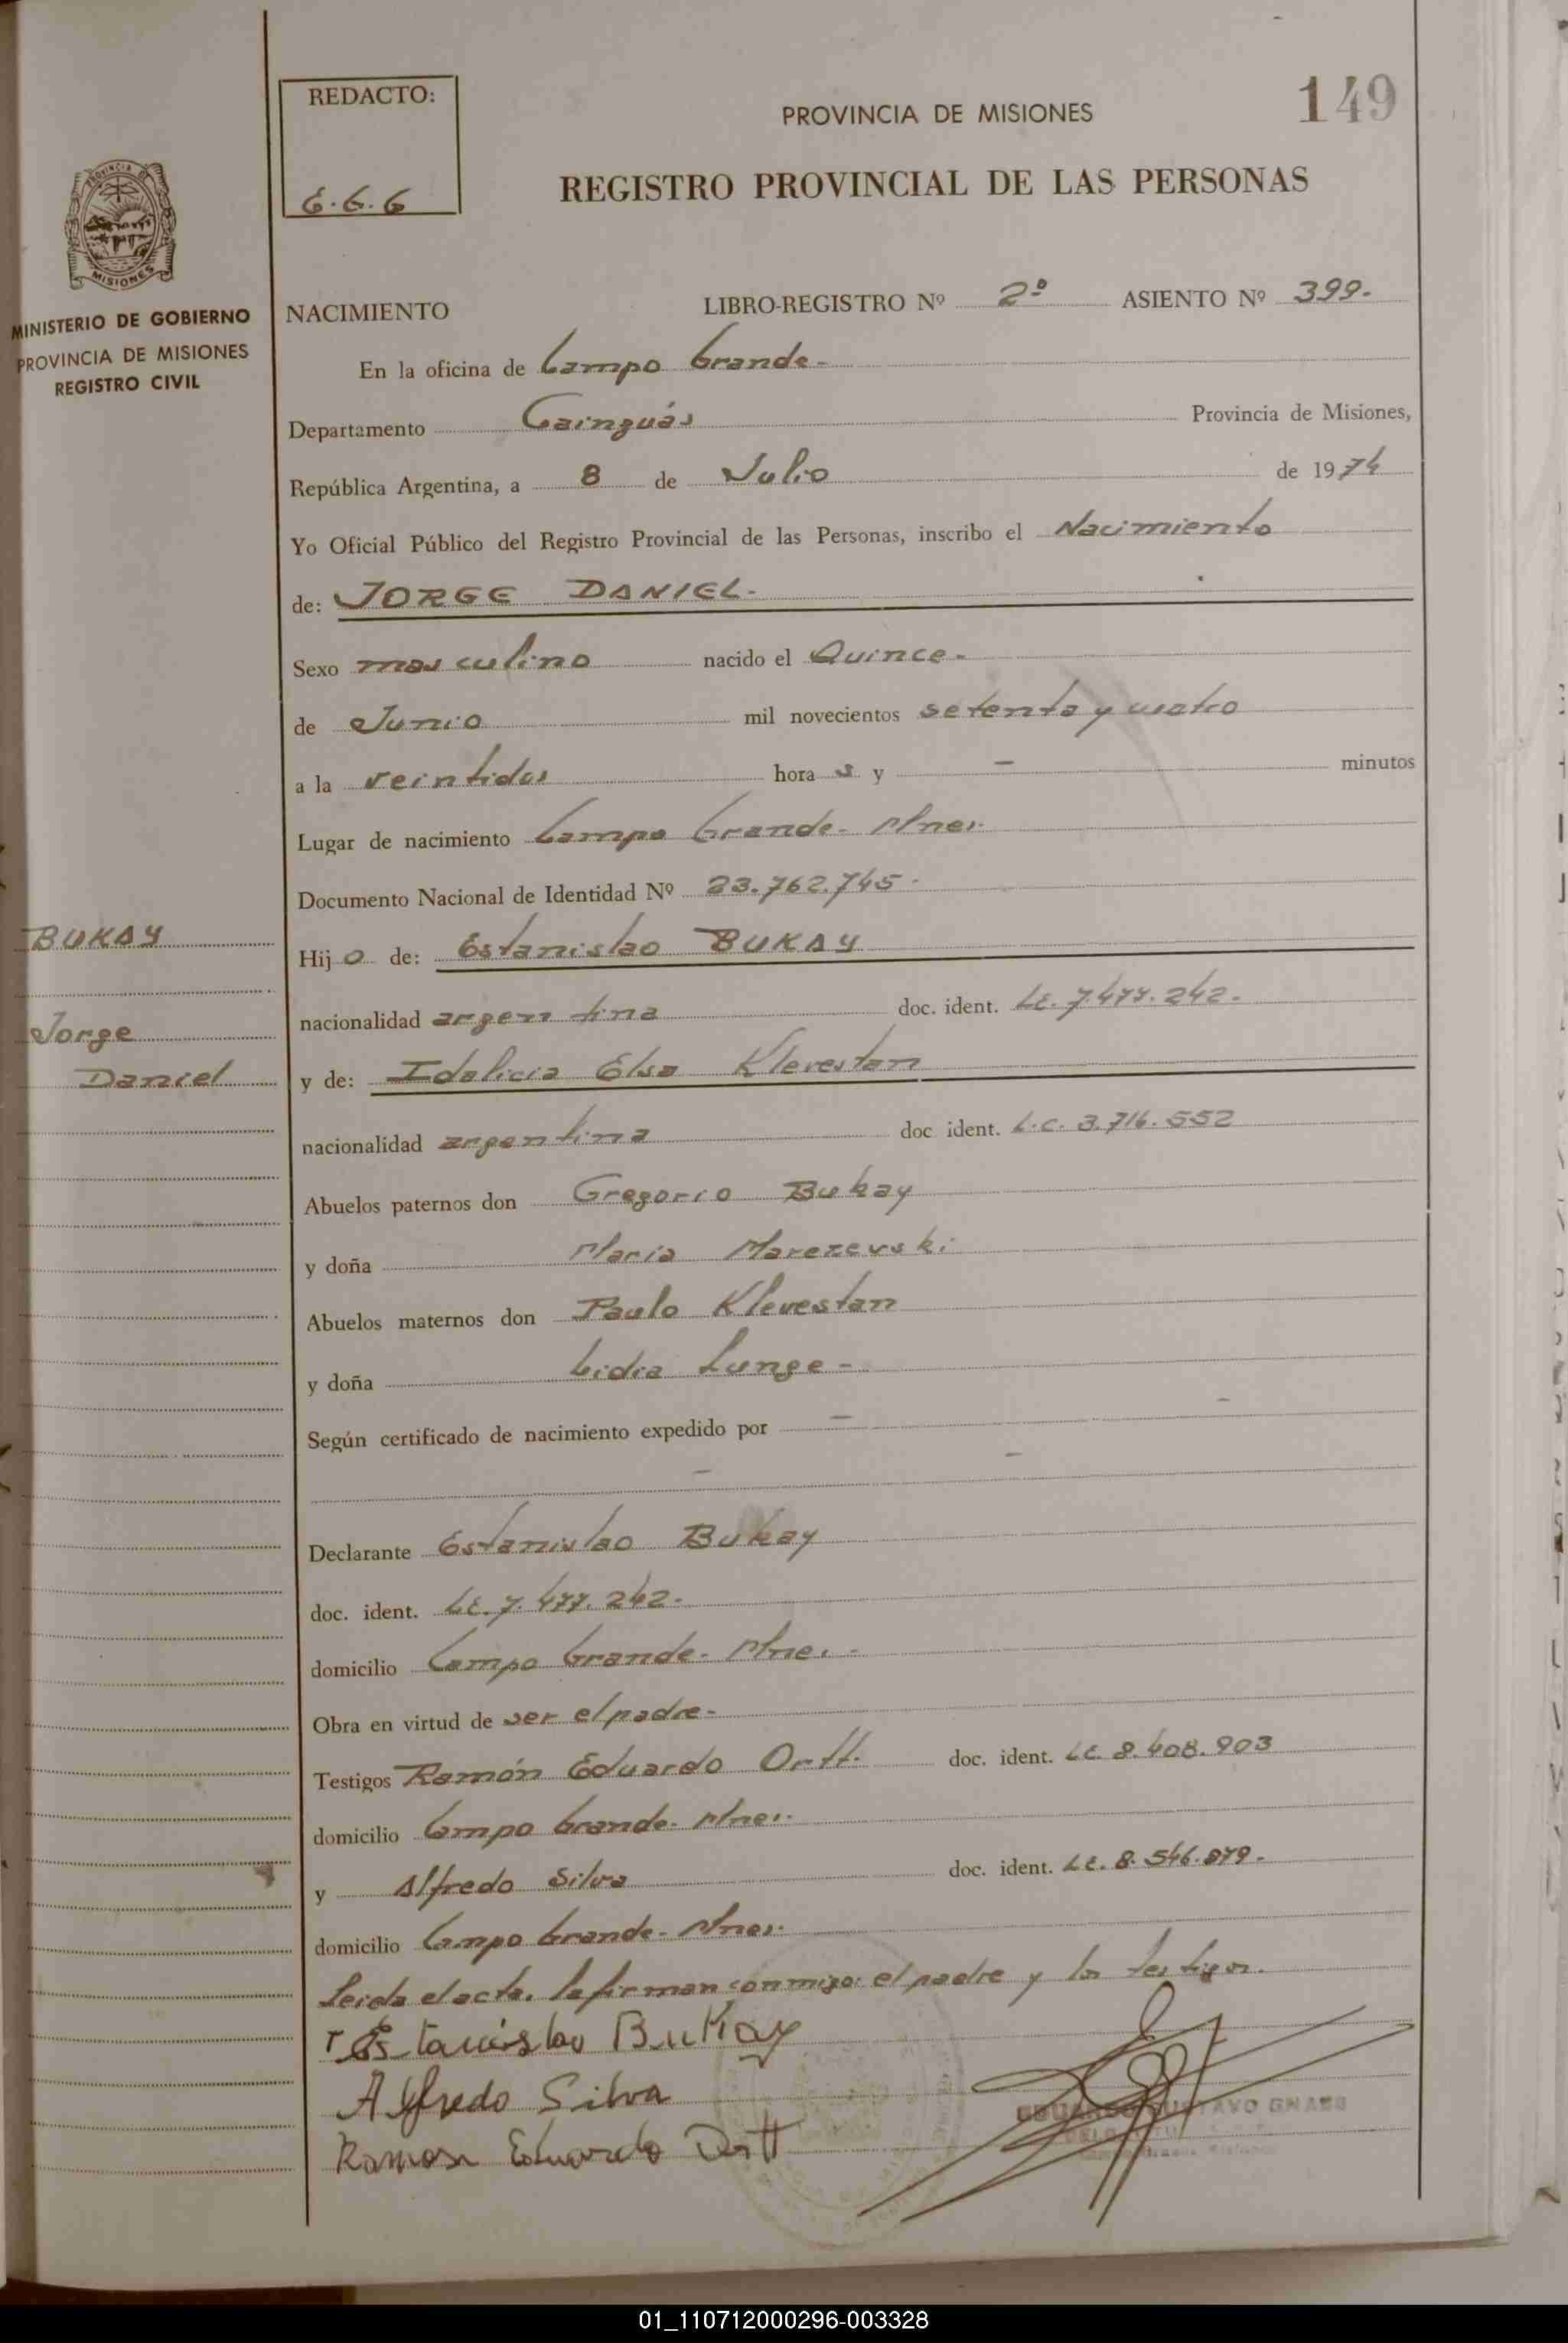 149
REDACTO:
G.G.G
PROVINCIA DE MISIONES
REGISTRO PROVINCIAL DE LAS PERSONAS
PROVINCIA DE
MISIONES
MINISTERIO DE GOBIERNO
PROVINCIA DE MISIONES
REGISTRO CIVIL
NACIMIENTO LIBRO-REGISTRO Nº 2º ASIENTO Nº 399.
En la oficina de Campo Grande-
Departamento Cainguás Provincia de Misiones,
República Argentina, a 8 de Julio de 1974
Yo Oficial Público del Registro Provincial de las Personas, inscribo el Nacimiento
de: JORGE DANIEL.
Sexo masculino nacido el Quince.
de Junio mil novecientos setenta y cuatro
a la veintidos hora s y - minutos
Lugar de nacimiento Campo Grande- Mnes.
Documento Nacional de Identidad Nº 23.762.745.
BUKAY
Hijo de: Estanislao BUKAY
nacionalidad argentina doc. ident. L.E. 7.477.242.
Jorge
Daniel
y de: Idalicia Elsa Klevestan
nacionalidad argentina doc ident. L.C. 3.716.552
Abuelos paternos don Gregorio Bukay
y doña María Marezevski
Abuelos maternos don Paulo Klevestan
y doña Lidia Lunge-
Según certificado de nacimiento expedido por -
Declarante Estanislao Bukay
doc. ident. L.E. 7.477.242.
domicilio Campo Grande- Mnes.-
Obra en virtud de ser el padre-
Testigos Ramón Eduardo Ortt. doc. ident. L.E. 8.408.903
domicilio Campo Grande- Mnes.
y Alfredo Silva doc. ident. L.E. 8.546.879.
domicilio Campo Grande- Mnes.
Leida el acta, la firman conmigo: el padre y los testigos.
Estanislao Bukay
Alfredo Silva
EDUARDO GUSTAVO GNASS
Ramon Eduardo Ortt
01_110712000296-003328